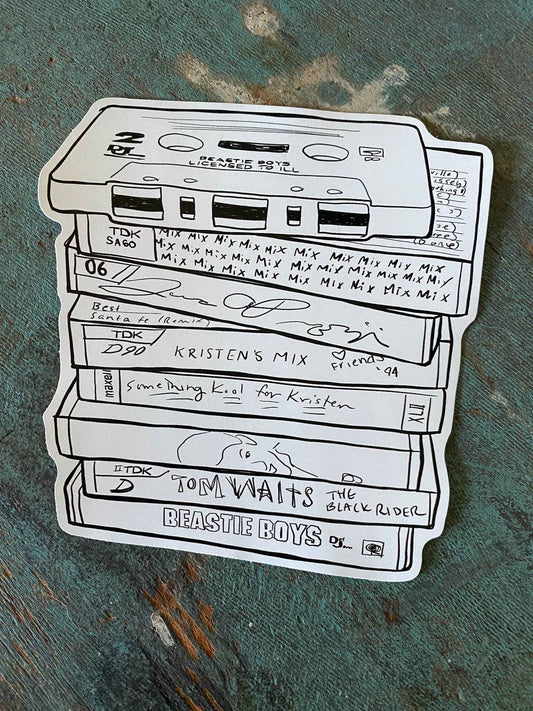 2
DEF
BEASTIE BOYS
LICENSED TO ILL
TDK
SA60
Mix Mix Mix Mix Mix Mix Mix Mix Mix Mix Mix
Mix Mix Mix Mix Mix Mix Mix Mix Mix Mix Mix Mix
Mix Mix Mix Mix Mix Mix Mix Mix Mix Mix
06
Best
Santa Fe (Remix)
TDK
D90
KRISTEN'S MIX
Friends
'94
maxell
Something Kool for Kristen
XLII
TDK
D
TOM WAITS
THE
BLACK RIDER
BEASTIE BOYS
Def